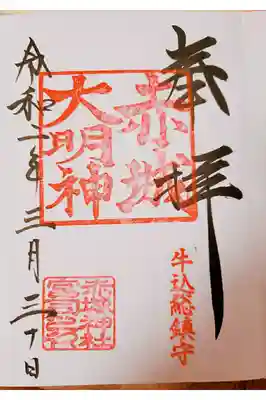 奉拝
牛込総鎮守
赤城
大明神
赤城神社
令和二年三月二十日